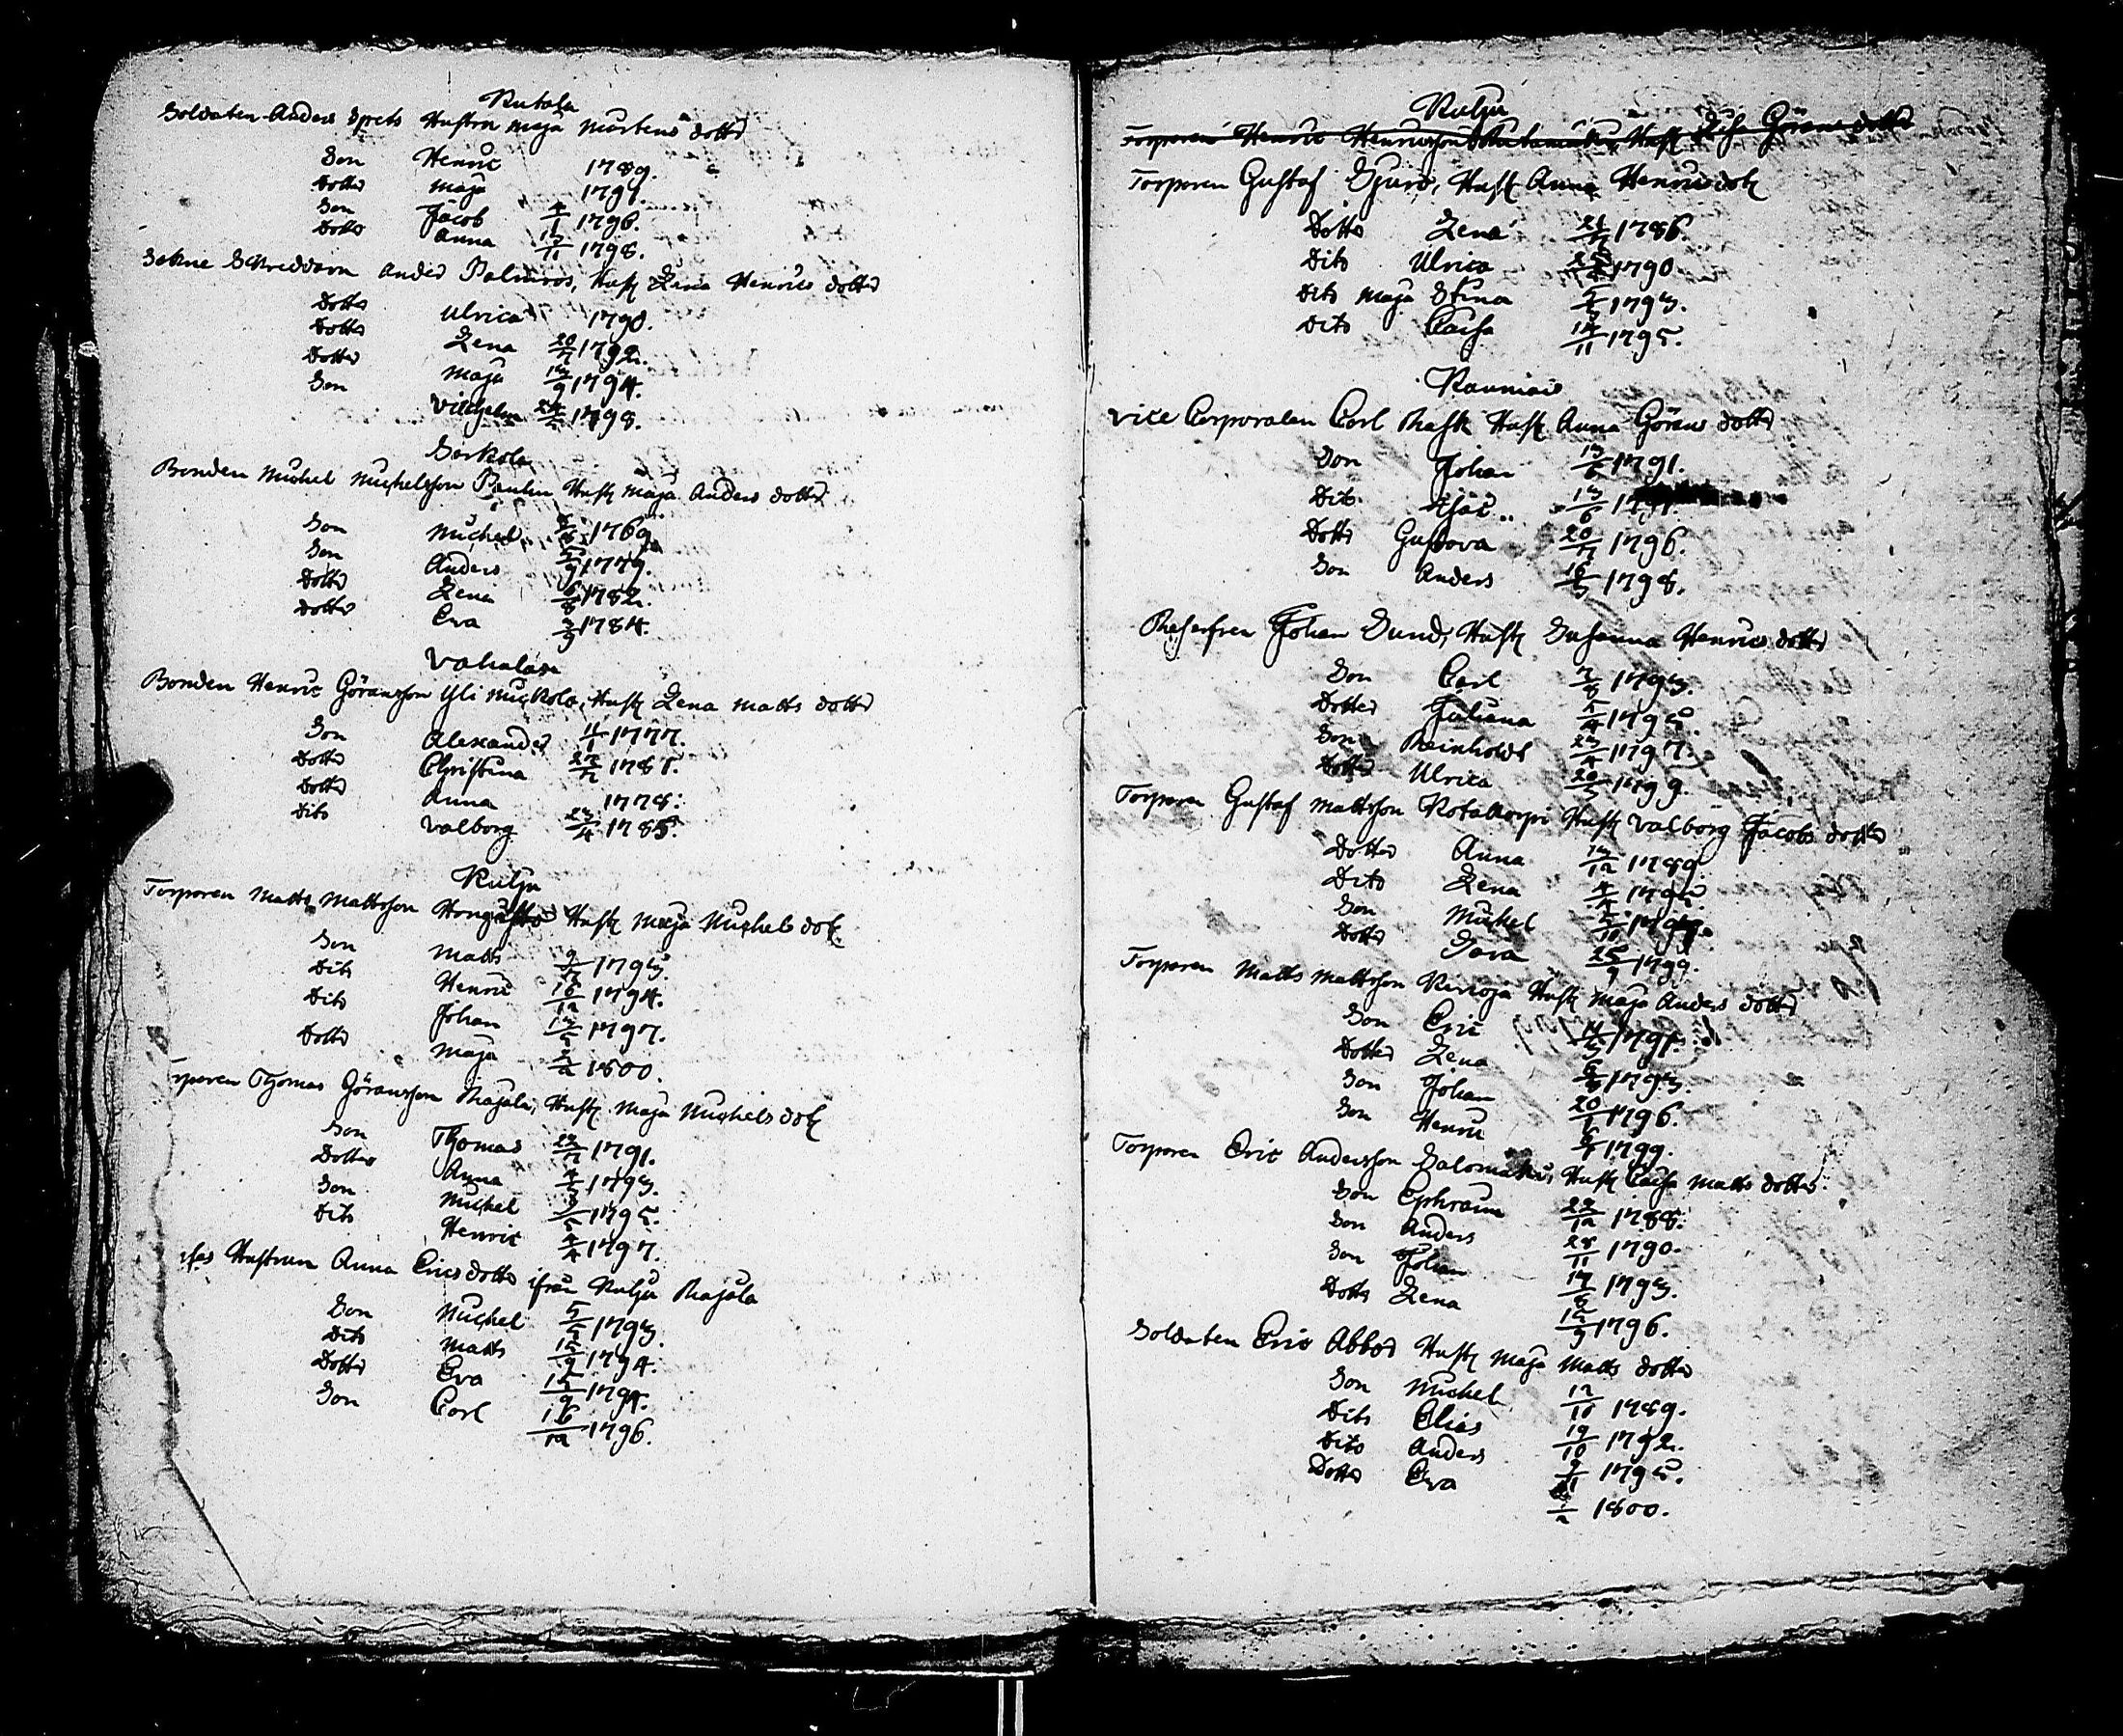 Rutola
Soldaten Anders Spets Hustru Maja Mårtens dotter
Son Henric 1789.
Dotter Maja 1791.
Son Jacob 4/1 1796.
Dotter Anna 17/11 1798.
Sokne Skreddarn Anders Palmros, Hust Lena Henrics dotter
Dotter Ulrica 1790.
Dotter Lena 20/7 1792.
Dotter Maja 13/9 1794.
Son Vilhelm 1798.
Sorkola
Bonden Michel Michelsson Paulin Hust Maja Anders dotter
Son Michel 1769.
Son Anders 1779.
Dotter Lena 6/8 1782.
Dotter Eva 3/9 1784.
Vahalase
Bonden Henric Göransson Yli Mickola, Hust Lena Matts dotter
Son Alexander 4/1 1777.
Dotter Christina 1781.
Dotter Anna 1778.
Dito Valborg 23/4 1785.
Kulju
Torparen Matts Mattsson Hust Maja Michels dott
Son Matts 9/7 1793.
Dito Henric 16/12 1794.
Dito Johan 1797.
Dotter Maja 1800.
Thomas Göransson Rajala, Hust Maja Michels dott
Son Thomas 22/7 1791.
Dotter Anna 1793.
Son Michel 1795.
Dito Henric 4/4 1797.
Hustrun Anna Erics dotter ifrån Kulju Rajala
Son Michel 1793
Dito Matts 1794.
Dotter Eva 1794.
Son Carl 16/12 1796.
Kulju
Torparen Henric Henricsson Hust Lisa Görans dotter
Torparen Gustaf Sjurs, Hust Anna Henrics dott
Dotter Lena 1786.
Dito Ulrica 1790
Dito Maja Stina 1793.
Dito Caisa 14/11 1795.
Rauniais
Vice Corporalen Carl Rask Hust Anna Görans dotter
Son Johan 13/6 1791.
Dito Isac 13/6
Dotter Gustava 20/7 1796.
Son Anders 1798.
Reserfven Johan Sund, Hust Susanna Henrics dotter
Son Carl 1793.
Dotter Juliana 5/4 1795.
Son Reinhold 23/4 1797.
Dotter Ulrica 20/3 1799.
Torparen Gustaf Mattsson Kotakorpi Hust Valborg Jacobs dotter
Dotter Anna 13/12 1789
Dito Lena 1795
Son Michel
Dotter Sara 25/9 1799.
Torparen Matts Mattsson Kerroja Hust Maja Anders dotter
Son Eric 1791.
Dotter Lena 1793.
Son Johan 20/1 1796.
Son Henric 1799.
Torparen Eric Andersson Salomäki, Hust Caisa Matts dotter.
Son Ephraim 22/12 1788.
Son Anders 28/11 1790.
Son Johan 17/8 1793.
Dotter Lena 1796.
Soldaten Eric Abbor Hust Maja Matts dotter
Son Michel 12/11 1789.
Dito Elias 19/10 1792.
Dito Anders 1795.
Dotter Eva 1800.